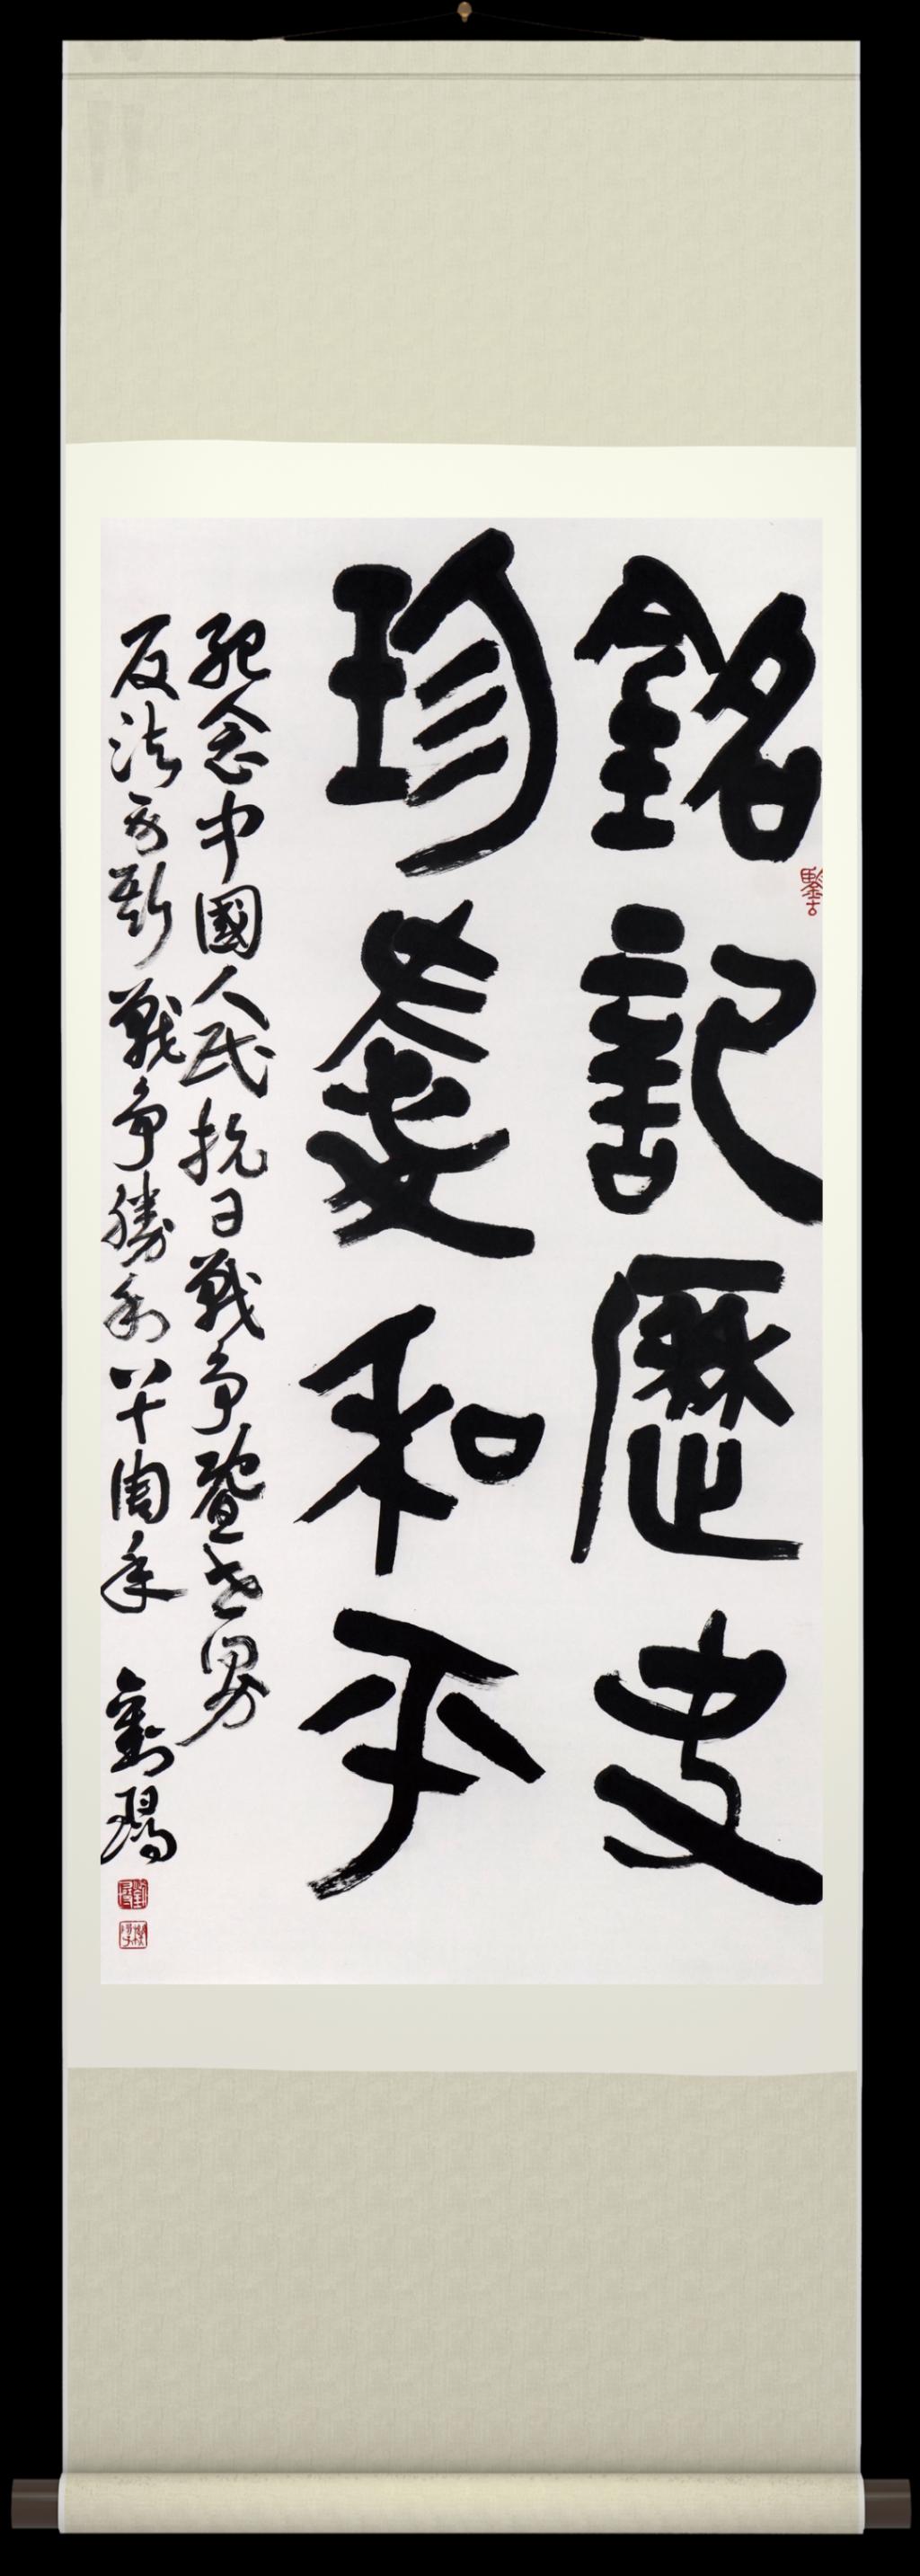 銘記歷史
珍愛和平
紀念中國人民抗日戰爭暨世界
反法西斯戰爭勝利八十周年 劉